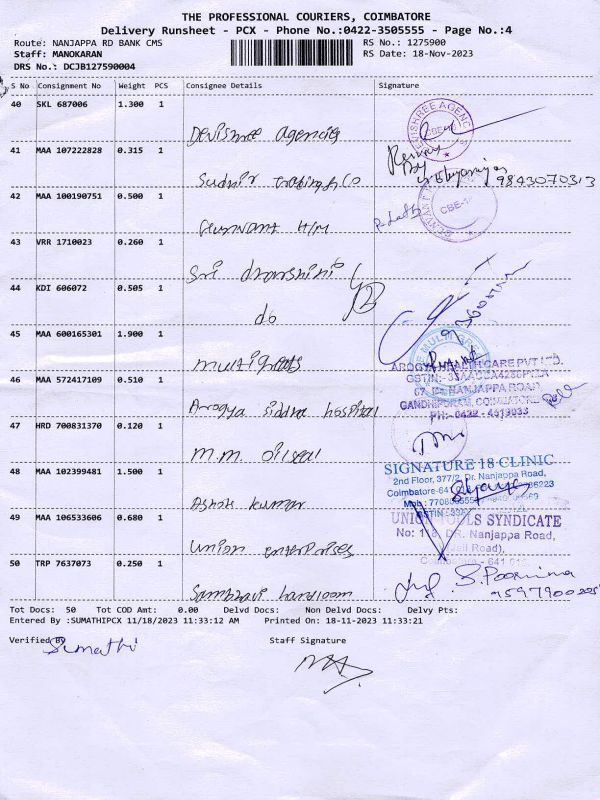 THE PROFESSIONAL COURIERS, COIMBATORE
Delivery Runsheet - PCX - Phone No.:0422-3505555 - Page No.:4
Route: NANJAPPA RD BANK CMS
RS No.: 1275900
Staff: MANOKARAN
RS Date: 18-Nov-2023
DRS No.: DCJB127590004
S No Consignment No Weight PCS Consignee Details Signature
40 SKL 687006 1.300 1
Devishree agencies
DEVISHREE AGENCIES
41 MAA 107222828 0.315 1
Sudhir trading & Co
9843070313
42 MAA 100190751 0.500 1
H/M
CBE-18
43 VRR 1710023 0.260 1
Sri
44 KDI 606072 0.505 1
do
45 MAA 600165301 1.900 1
multigrats
AROGYA HEALTH CARE PVT LTD.
46 MAA 572417109 0.510 1
NANJAPPA ROAD
GANDHIPURAM, COIMBATORE
Arogya siddha hospital
PH:-0422 - 4519033
47 HRD 700831370 0.120 1
M.M. oilseal
SIGNATURE 18 CLINIC
48 MAA 102399481 1.500 1
2nd Floor, 377/2, Dr. Nanjappa Road,
Coimbatore-64
Ashok kumar
49 MAA 106533606 0.680 1
UNION TOOLS SYNDICATE
No: DR. Nanjappa Road,
Union enterprises
Coimbatore - 641
50 TRP 7637073 0.250 1
Sambhavi handloom
S. Poornima
Tot Docs: 50 Tot COD Amt: 0.00 Delvd Docs: Non Delvd Docs: Delvy Pts:
Entered By :SUMATHIPCX 11/18/2023 11:33:12 AM Printed On: 18-11-2023 11:33:21
Verified By
Staff Signature
Sumathi